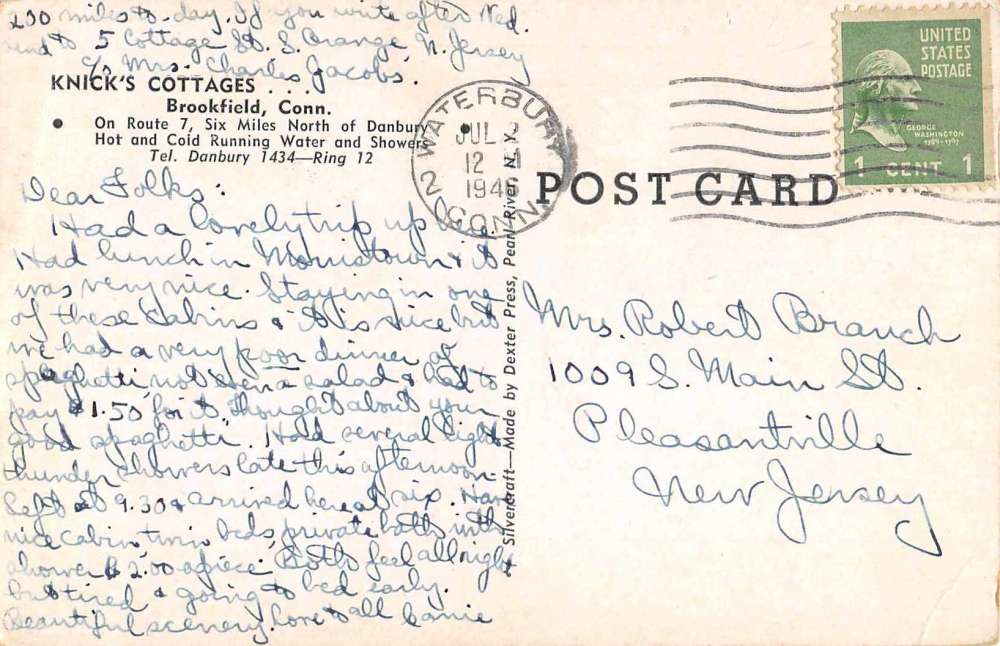 230 miles to-day. If you write after Wed.
send to 5 Cottage St. S. Orange N. Jersey
c/o Mrs. Charles Jacobs.
KNICK'S COTTAGES . . .
Brookfield, Conn.
• On Route 7, Six Miles North of Danbury
Hot and Cold Running Water and Showers
Tel. Danbury 1434—Ring 12
Dear Folks:
Had a lovely trip up here.
Had lunch in Morristown & it
was very nice. Staying in one
of these cabins & it is nice but
we had a very poor dinner of
spaghetti, not even a salad & had to
pay $1.50 for it. Thought about your
good spaghetti. Had several light
thunder showers late this afternoon.
Left at 9.30 & arrived here at six. Have
nice cabin, twin beds, private bath with
shower $2.00 apiece. Both feel all right
but tired & going to bed early.
Beautiful scenery. Love to all
Silvercraft—Made by Dexter Press, Pearl River, N. Y.
WATERBURY
JUL 2
12
194
2 CONN.
UNITED
STATES
POSTAGE
GEORGE
WASHINGTON
1789-1797
1 CENT 1
POST CARD
Mrs. Robert Branch
1009 S. Main St.
Pleasantville
New Jersey